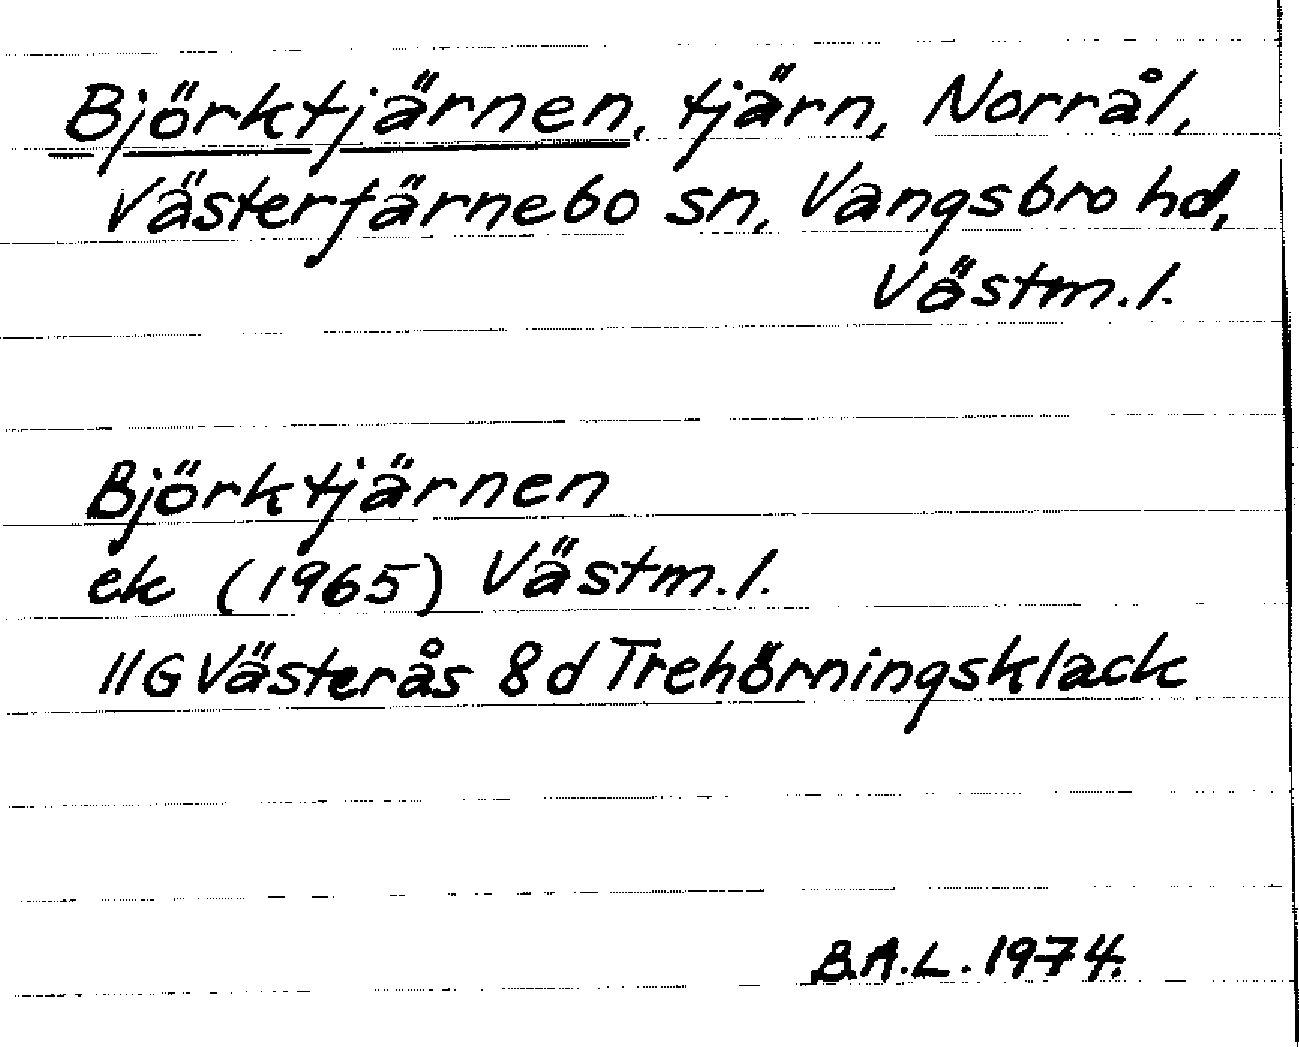 Björktjärnen, tjärn, Norrål,
Västerfärnebo sn, Vangsbro hd,
Västm.l.
Björktjärnen
ek (1965) Västm.l.
11G Västerås 8d Trehörningsklack
B.A.L. 1974.